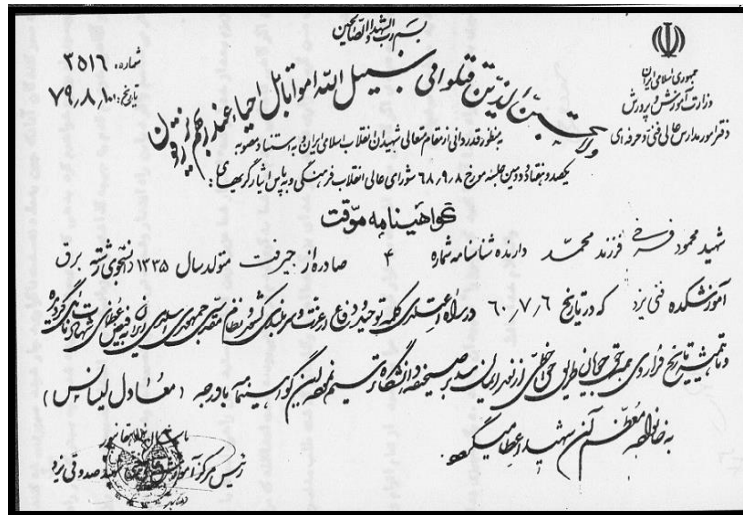 بسم رب الشهدا والصالحین
جمهوری اسلامی ایران
وزارت آموزش و پرورش
دفتر امور مدارس عالی فنی و حرفه ای
شماره: ۳۵۱۶
تاریخ: ۷۹,۸,۱۰
ولا تحسبن الذین قتلوا فی سبیل الله امواتا بل احیاء عند ربهم یرزقون
به منظور قدردانی از مقام متعالی شهیدان انقلاب اسلامی ایران به استناد مصوبه
یکصد و هفتاد و دومین جلسه مورخ ۶۸,۹,۸ شورای عالی انقلاب فرهنگی و به پاس ایثارگریهای:
گواهینامه موقت
شهید محمود فرخی فرزند محمد دارنده شناسنامه شماره ۴ صادره از جیرفت متولد سال ۱۳۳۵ دانشجوی رشته برق
آموزشکده فنی یزد که در تاریخ ۶۰,۷,۶ در راه اعتلای کلمه توحید و دفاع از عزت و سربلندی کشور و نظام مقدس جمهوری اسلامی ایران به فیض عظمای شهادت نائل گردیده
و تا همیشه تاریخ فراروی همه حق جویان طریق حق خطی از نور ایمان بر صحیفه دانشگاه ترسیم نموده این گواهینامه با درجه (معادل لیسانس)
به خانواده معظم آن شهید اعطا میگردد
رئیس مرکز آموزش شهید صدوقی یزد